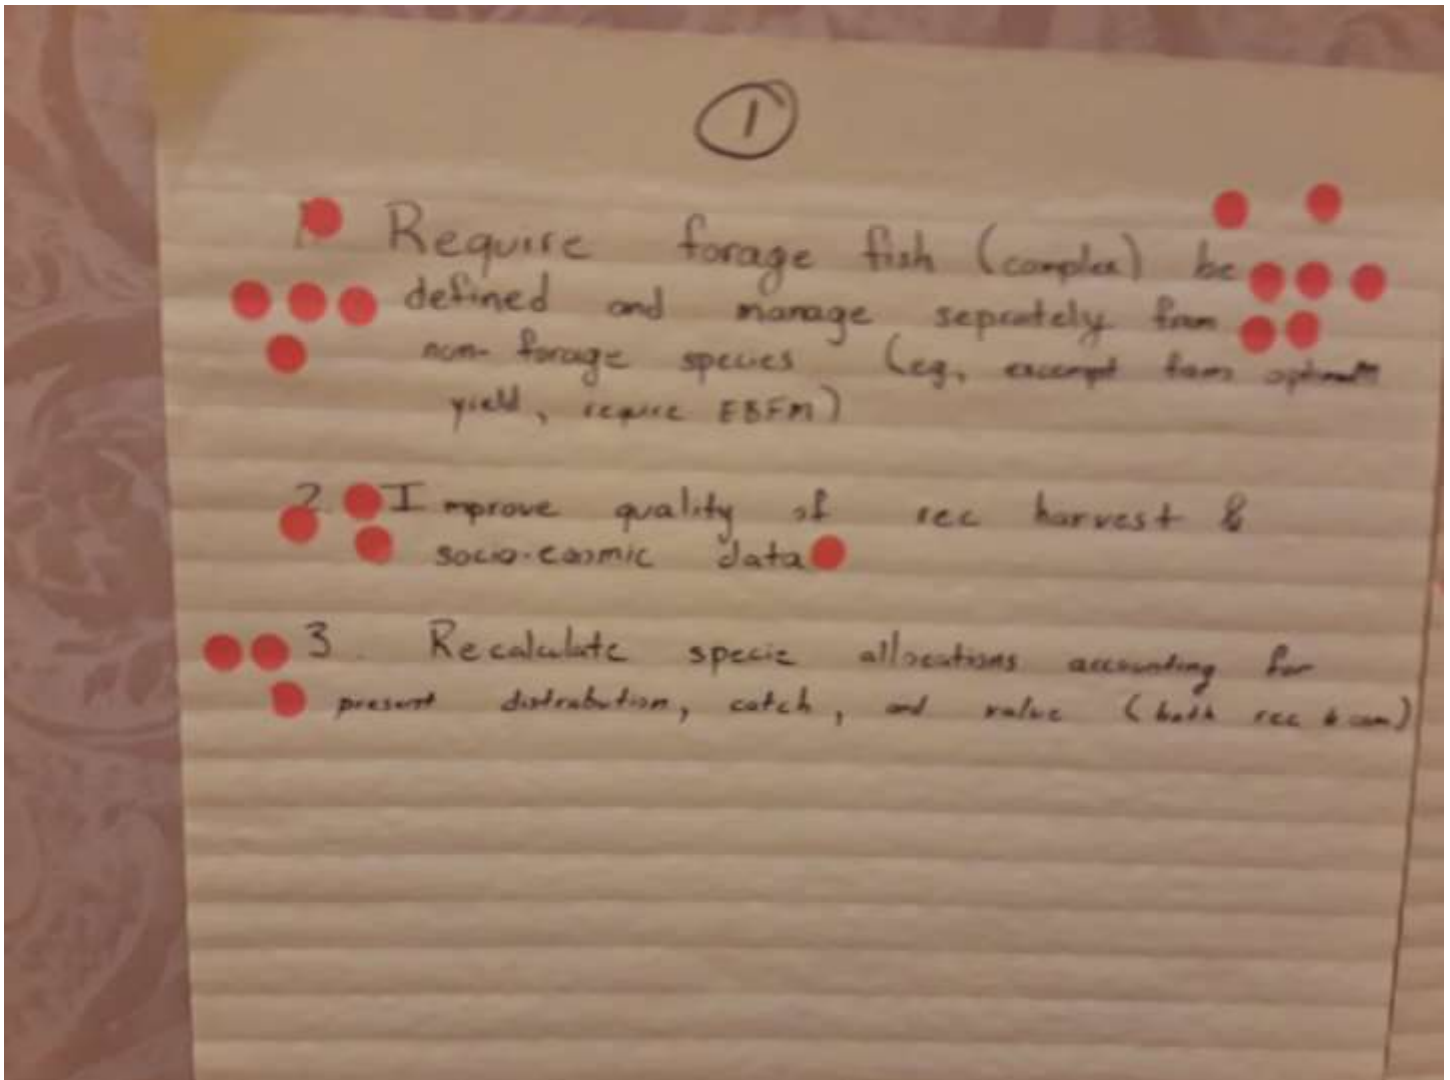 1
1 Require forage fish (complex) be
defined and manage seprately from
non-forage species (eg, excempt from optimum
yield, require EBFM)
2. Improve quality of rec harvest &
socio-econmic data
3. Recalculate specie allocations accounting for
present distrabution, catch, and value (both rec & com)